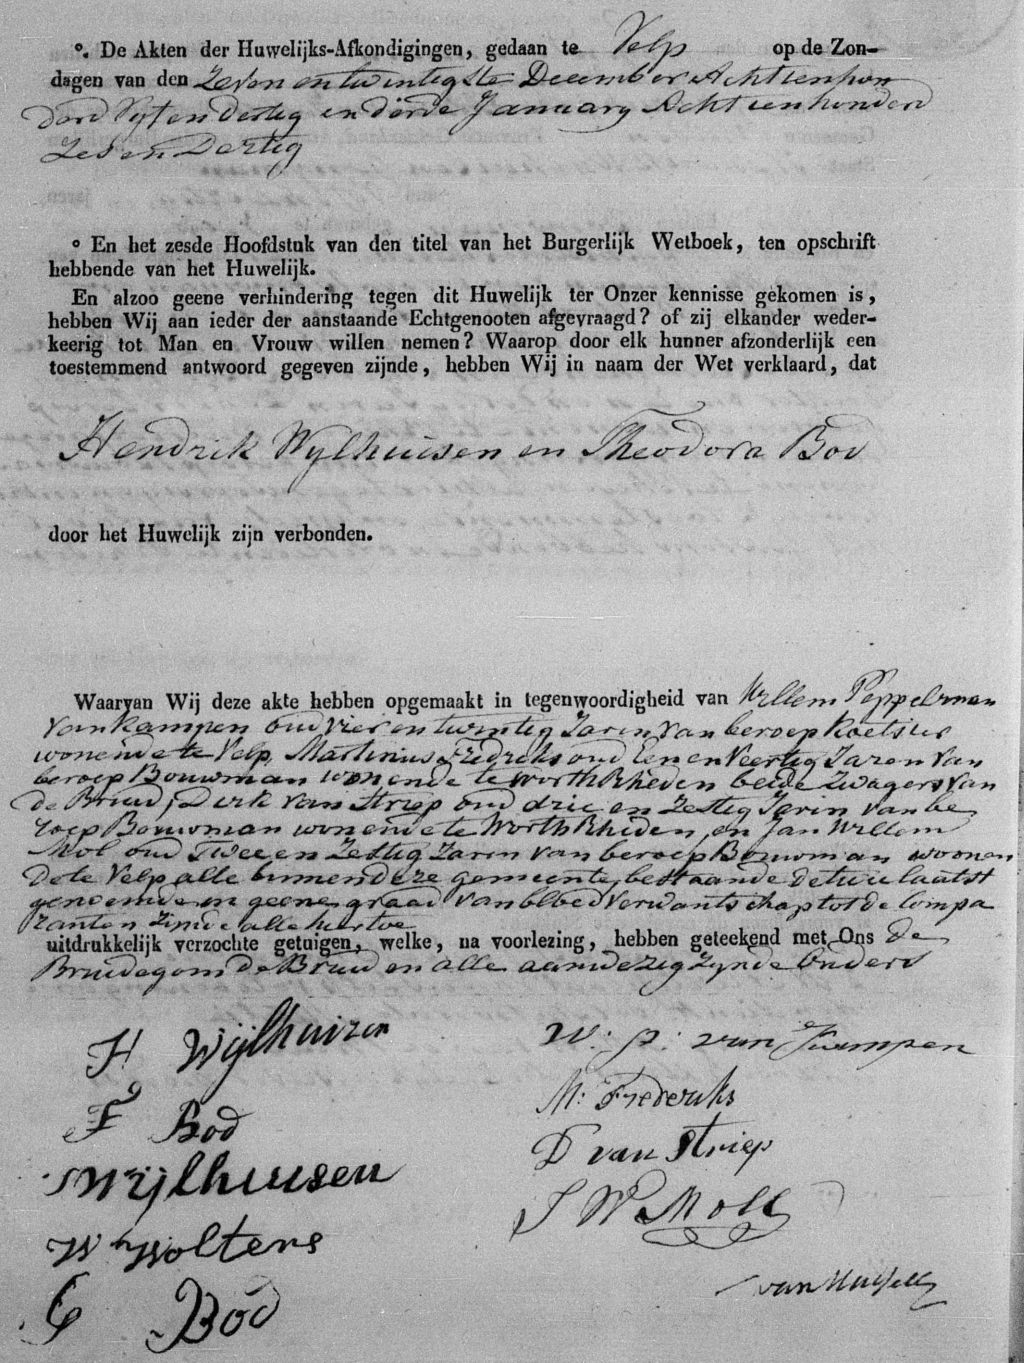 °. De Akten der Huwelijks-Afkondigingen, gedaan te Velp op de Zon-
dagen van den Zeven en twintigste December Achttienhon
derd Vyf en Dertig en derde January Achttienhonderd
Zes en Dertig
° En het zesde Hoofdstuk van den titel van het Burgerlijk Wetboek, ten opschrift
hebbende van het Huwelijk.
En alzoo geene verhindering tegen dit Huwelijk ter Onzer kennisse gekomen is,
hebben Wij aan ieder der aanstaande Echtgenooten afgevraagd? of zij elkander weder-
keerig tot Man en Vrouw willen nemen? Waarop door elk hunner afzonderlijk een
toestemmend antwoord gegeven zijnde, hebben Wij in naam der Wet verklaard, dat
Hendrik Wylhuisen en Theodora Bod
door het Huwelijk zijn verbonden.
Waarvan Wij deze akte hebben opgemaakt in tegenwoordigheid van Willem Peppelman
van Kampen oud vier en twintig Jaren van beroep Koetsier
wonende te Velp, Martinus Fredriks oud Een en Veertig Jaren van
beroep Bouwman wonende te Worth Rheden beide Zwagers van
de Bruid, Derk van Striep oud drie en Zestig Jaren van be
roep Bouwman wonende te Worth Rheden, en Jan Willem
Mol oud Twee en Zestig Jaren van beroep Bouwman woonen
de te Velp alle binnen deze gemeente, bestaande de twee laatst
genoemde in geene graad van bloedverwantschap tot de Compa
ranten zijnde alle hiertoe
uitdrukkelijk verzochte getuigen, welke, na voorlezing, hebben geteekend met Ons de
Bruidegom de Bruid en alle aanwezig zynde Ouders
H Wijlhuizen
W: P: van Kampen
F Bod
M: Frederiks
Wijlhuusen
D van Striep
W Wolters
J W Moll
G Bod
van